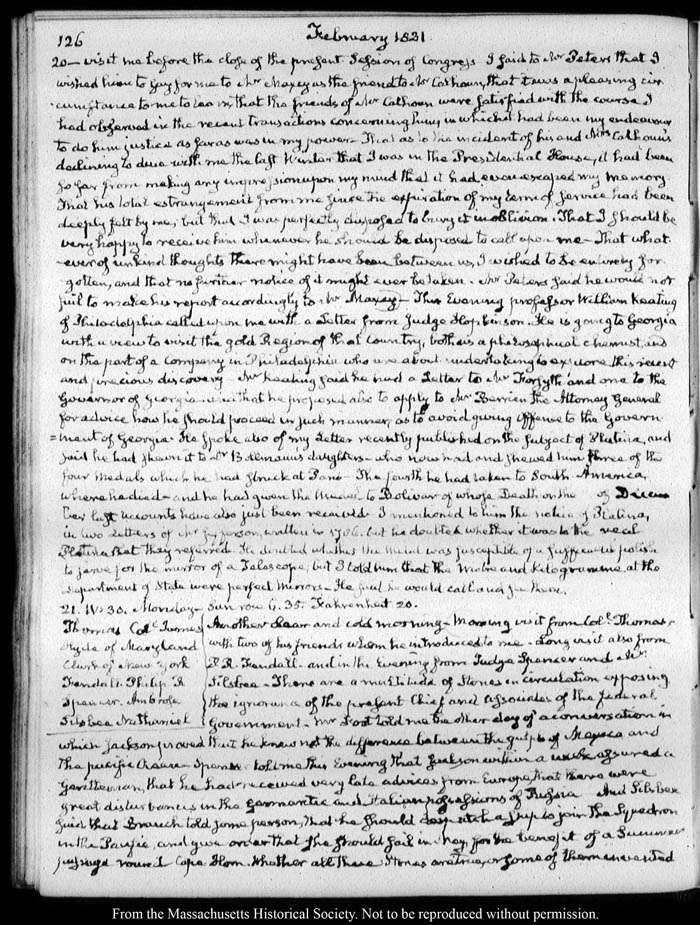 126
February 1831.
20— visit me before the close of the present Session of Congress I said to Mr Peters that I
wished him to say for me to Mr Maxcy as the friend to Mr Calhoun, that it was a pleasing cir-
cumstance to me to learn that the friends of Mr Calhoun were satisfied with the course I
had observed in the recent transactions concerning him, in which it had been my endeavour
to do him justice as far as was in my power— That as to the incident of his and Mrs Calhoun's
declining to dine with me the last Winter that I was in the Presidential House, it had been
so far from making any impression upon my mind that it had even escaped my memory.
That his total estrangement from me since the expiration of my term of service had been
deeply felt by me, but that I was perfectly disposed to bury it in oblivion. That I should be
very happy to receive him whenever he should be disposed to call upon me— That what-
-ever of unkind thoughts there might have been between us, I wished to be entirely for-
gotten, and that no further notice of it might ever be taken. Mr Peters said he would not
fail to make his report accordingly to Mr Maxcy— This Evening professor William Keating
of Philadelphia called upon me with a Letter from Judge Hopkinson. He is going to Georgia
with a view to visit the gold Region of that country, both as a philosophical chemist, and
on the part of a company in Philadelphia who are about undertaking to explore this recent
and precious discovery— Mr Keating said he had a Letter to Mr Forsyth and one to the
Governor of Georgia. and that he proposed also to apply to Mr Berrien the Attorney General
for advice how he should proceed in such manner, as to avoid giving offense to the Govern-
=ment of Georgia. He spoke also of my Letter recently published on the subject of Platina, and
said he had shewn it to Dr Bollman's daughters— who now had and shewed him three of the
four Medals which he had struck at Paris— The fourth he had taken to South-America,
where he died— and he had given the Medal to Bolivar of whose Death on the of Decem
ber last accounts have also just been received. I mentioned to him the notice of Platina,
in two Letters of Mr Jefferson, written in 1786. but he doubted whether it was to the real
Platina that they referred. He doubted whether the Metal was susceptible of a sufficient polish
to serve for the mirror of a Telescope, but I told him that the Metre and Kilogramme, at the
Department of State were perfect Mirrors— He said he would call and see them.
21. IV:30. Monday— Sun rose 6.35. Fahrenheit 20.
Thomas Col James
Hyde of Maryland
Clark of New York
Fendall. Philip R
Spencer. Ambrose
Silsbee Nathaniel
Another clear and cold morning— Morning visit from Col. Thomas,
with two of his friends whom he introduced to me— Long visit also from
P. R. Fendall— and in the Evening from Judge Spencer and Mr
Silsbee— There are a multitude of Stories in circulation exposing
the ignorance of the present Chief and Associates of the federal
Government— Mr Foot told me the other day of a conversation in
which Jackson proved that he knew not the difference between the gulph of Mexico and
the pacific Ocean— Spencer told me this Evening that Jackson within a week assured a
Gentleman, that he had received very late advices from Europe that there were
great disturbances in the Germantic and Italian possessions of Russia And Silsbee
said that Branch told some person, that he should despatch a Ship to join the Squadron
in the Pacific, and give order that she should sail in May, for the benefit of a Summer
passage round Cape Horn. Whether all these Stories are true, or some of them invented
From the Massachusetts Historical Society. Not to be reproduced without permission.